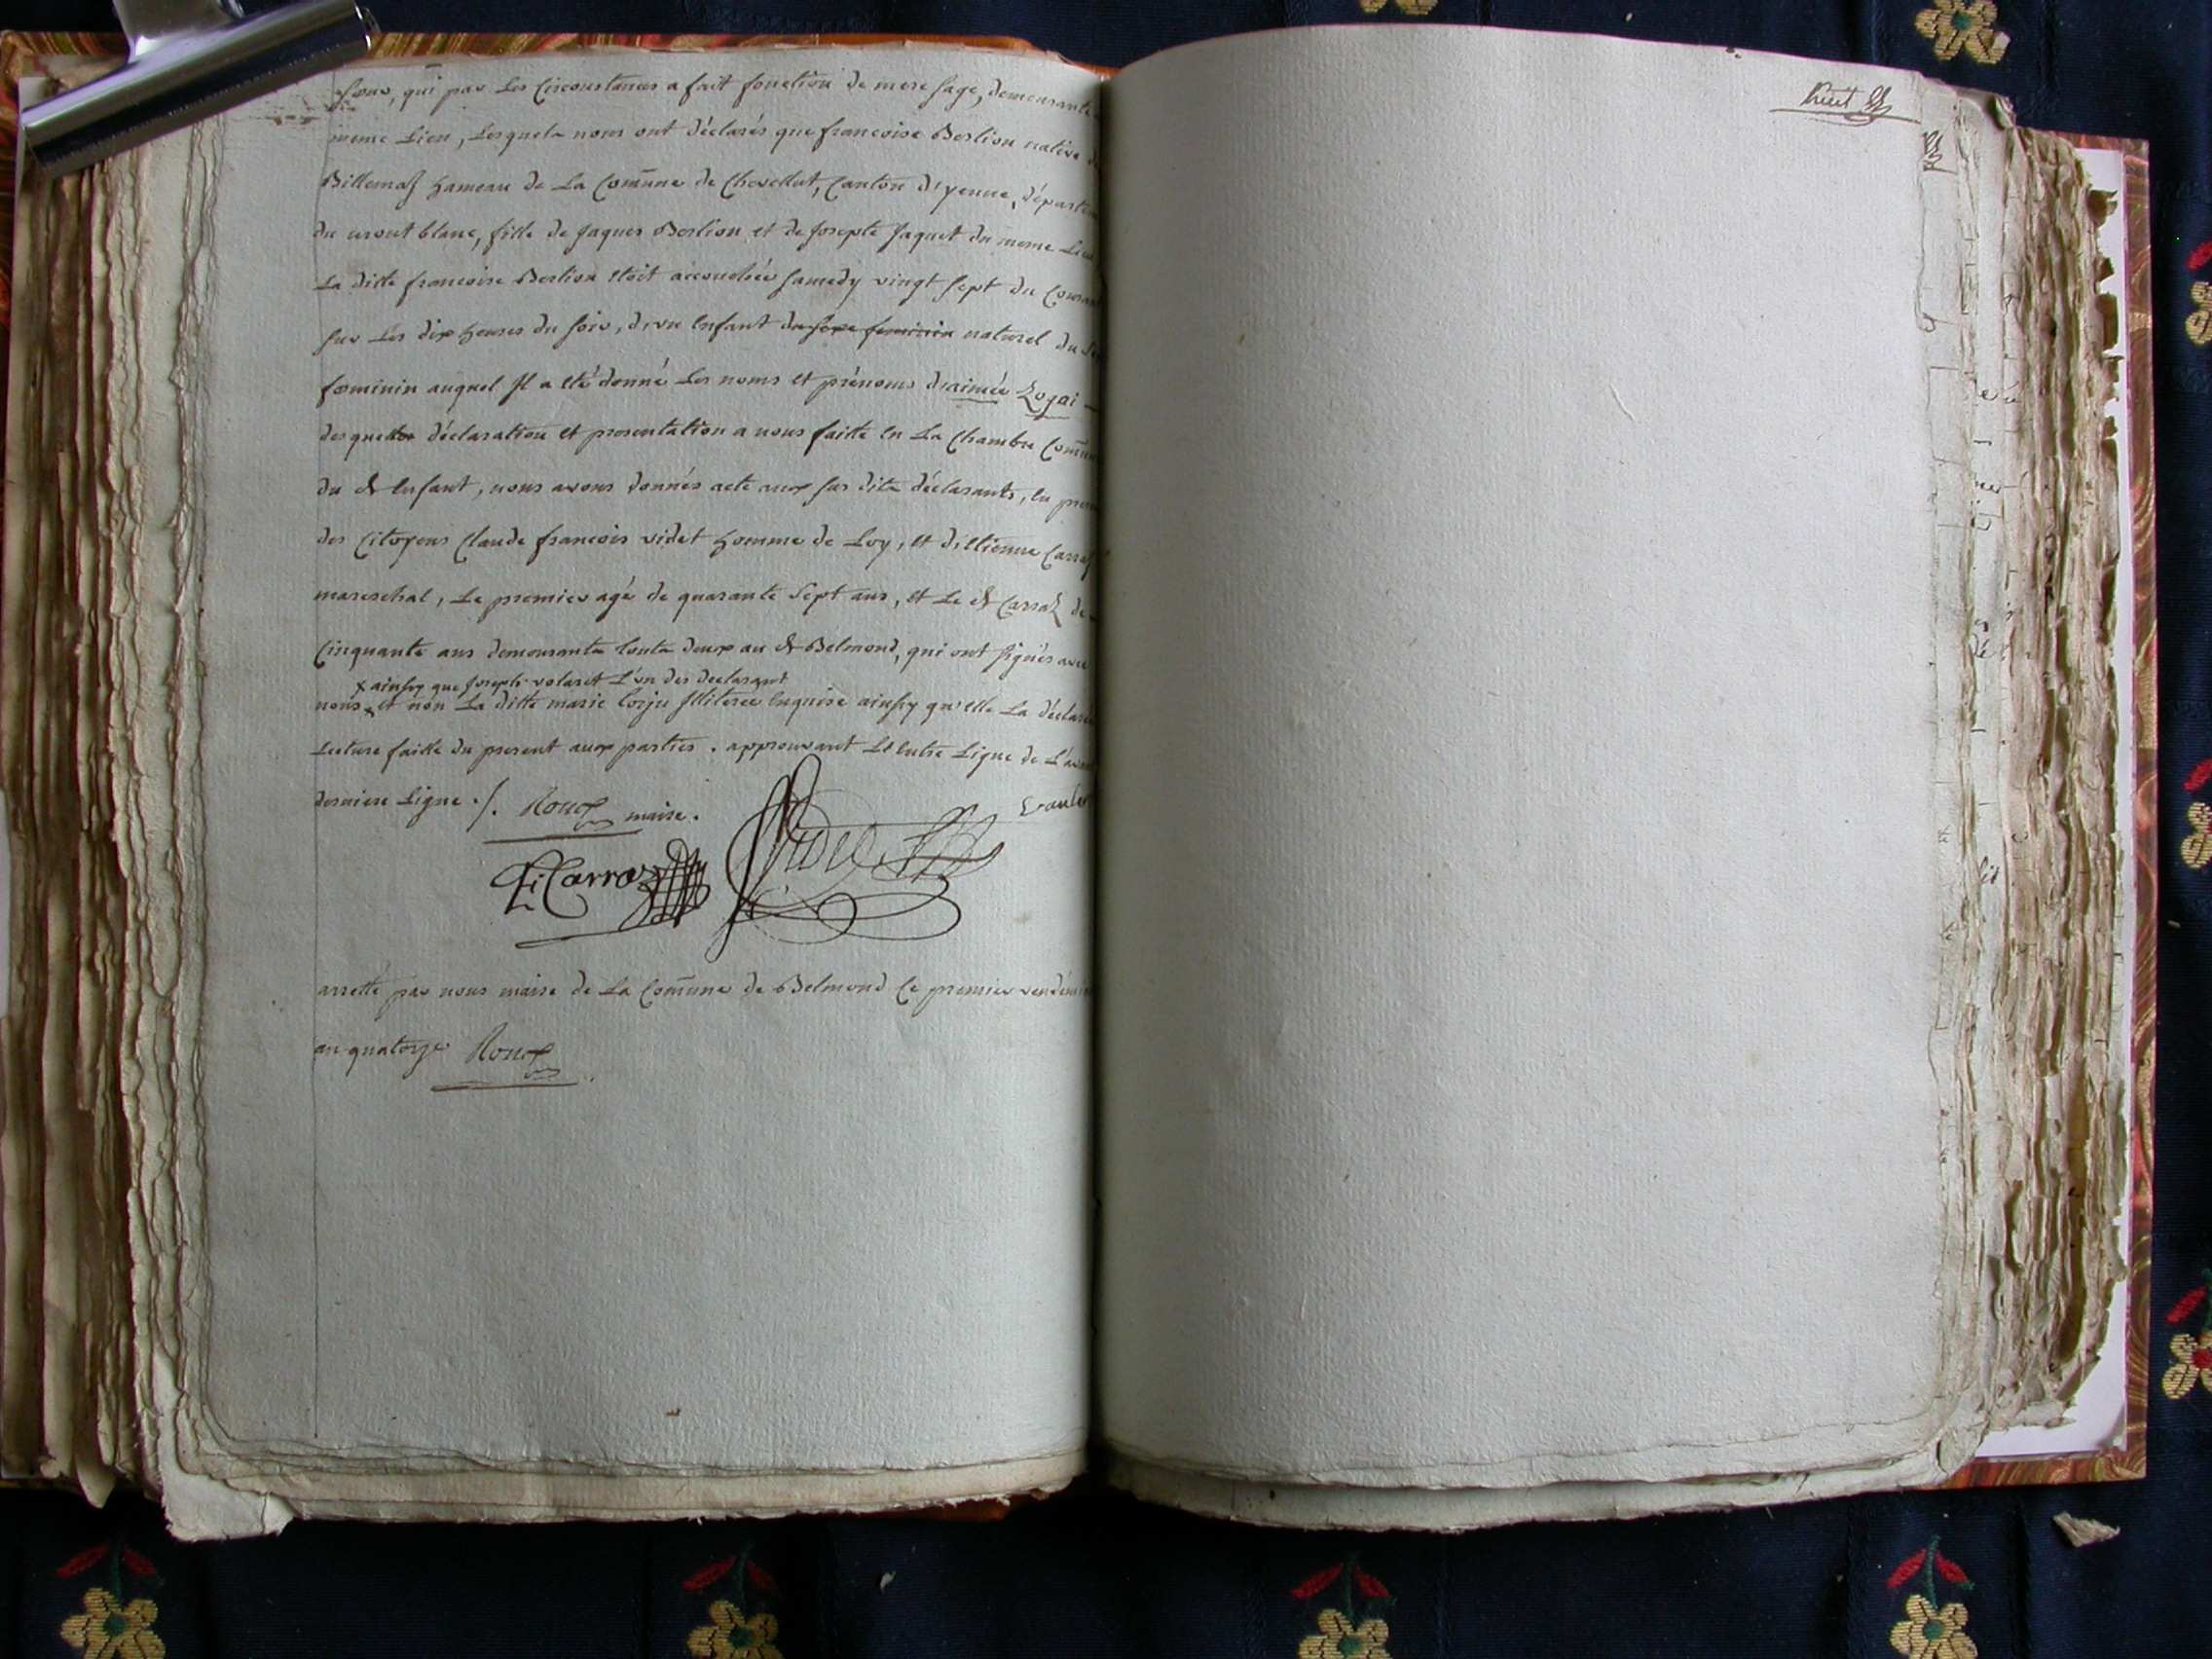 qui par les Circonstances a fait fonction de mere sage, demeurante
meme Lieu, Lesquels nous ont déclarés que francoise Berlion native
Billemaz hameau de La Comune de Chevellut, Canton d'yenne,
du mont blanc, fille de Jaques Berlion et de Josepte Jaquet du meme Lieu
La ditte francoise Berlion etoit accouchée Samedy vingt sept du
sur Les dix heures du soir, d'un Enfant du sexe feminin naturel du
feminin auquel Il a eté donné Les noms et prénoms d'aimée Zogai
desquelles déclaration et presentation a nous faitte en La Chambre
du dt Enfant, nous avons donnés acte aux sus dits déclarants, en
des Citoyens Claude francois videt homme de Loy, et d'Etienne
mareschal, Le premier agé de quarante Sept ans, et Le dt Carraz de
Cinquante ans demeurants touts deux au dt Belmond, qui ont signés avec
x ainsy que Joseph volaret L'un des declarant
nous x et non La ditte marie Illiteree Enquise ainsy qu'elle La
Lecture faitte du present aux parties. approuvant L'Entre Ligne de
derniere Ligne ./. Roux maire.
Carraz Videt
arretté par nous maire de La Comune de Belmond Ce premier
an quatorze Roux
huit